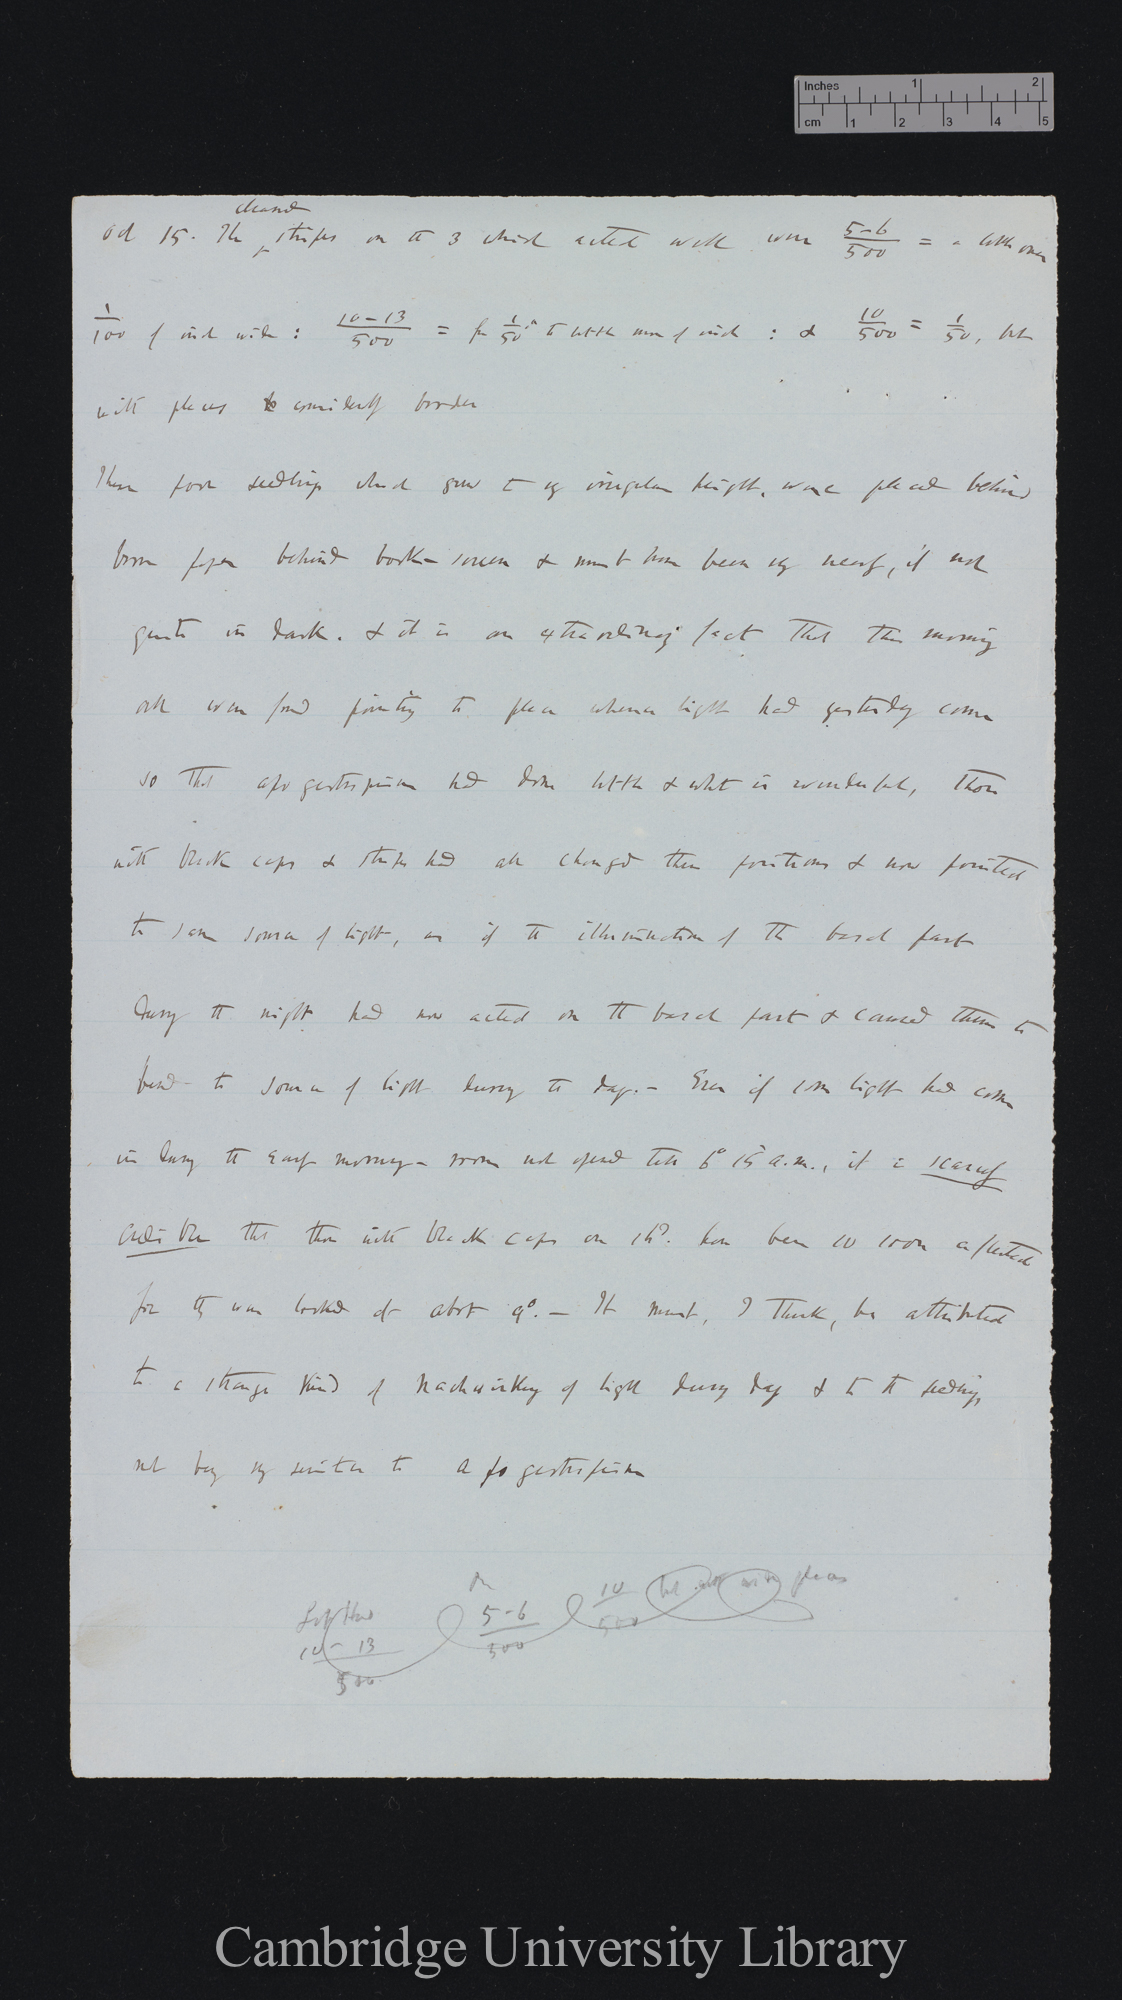 Inches 1 2
cm 1 2 3 4 5
cleaned
Oct 15. The stripes on the 3 which acted well were 5-6/500 = a little over
1/100 of inch wide: 10-13/500 = for 1/50th to little more of inch: & 10/500 = 1/50, but
with places considerably broader
These four seedlings which grew to very irregular height, were placed behind
brown paper behind book-screen & must have been very nearly, if not
quite in dark. & it is an extraordinary fact that this morning
all were found pointing to place whence light had yesterday come
so that apogeotropism had done little & what is wonderful, those
with black caps & stripes had all changed their positions & now pointed
to same source of light, as if the illumination of the basal part
during the night had now acted on the basal part & caused them to
bend to source of light during the day.— Even if some light had come
in during the early morning – room not opened till 6° 15 a.m., it is scarcely
credible that those with black caps on shd. have been so soon affected
for they were looked at about 9°.— It must, I think, be attributed
to a strange kind of Nachwirkung of light during day & to the seedlings
not being very sensitive to apogeotropism
5-6/500
10/500 places
10-13/500
Cambridge University Library